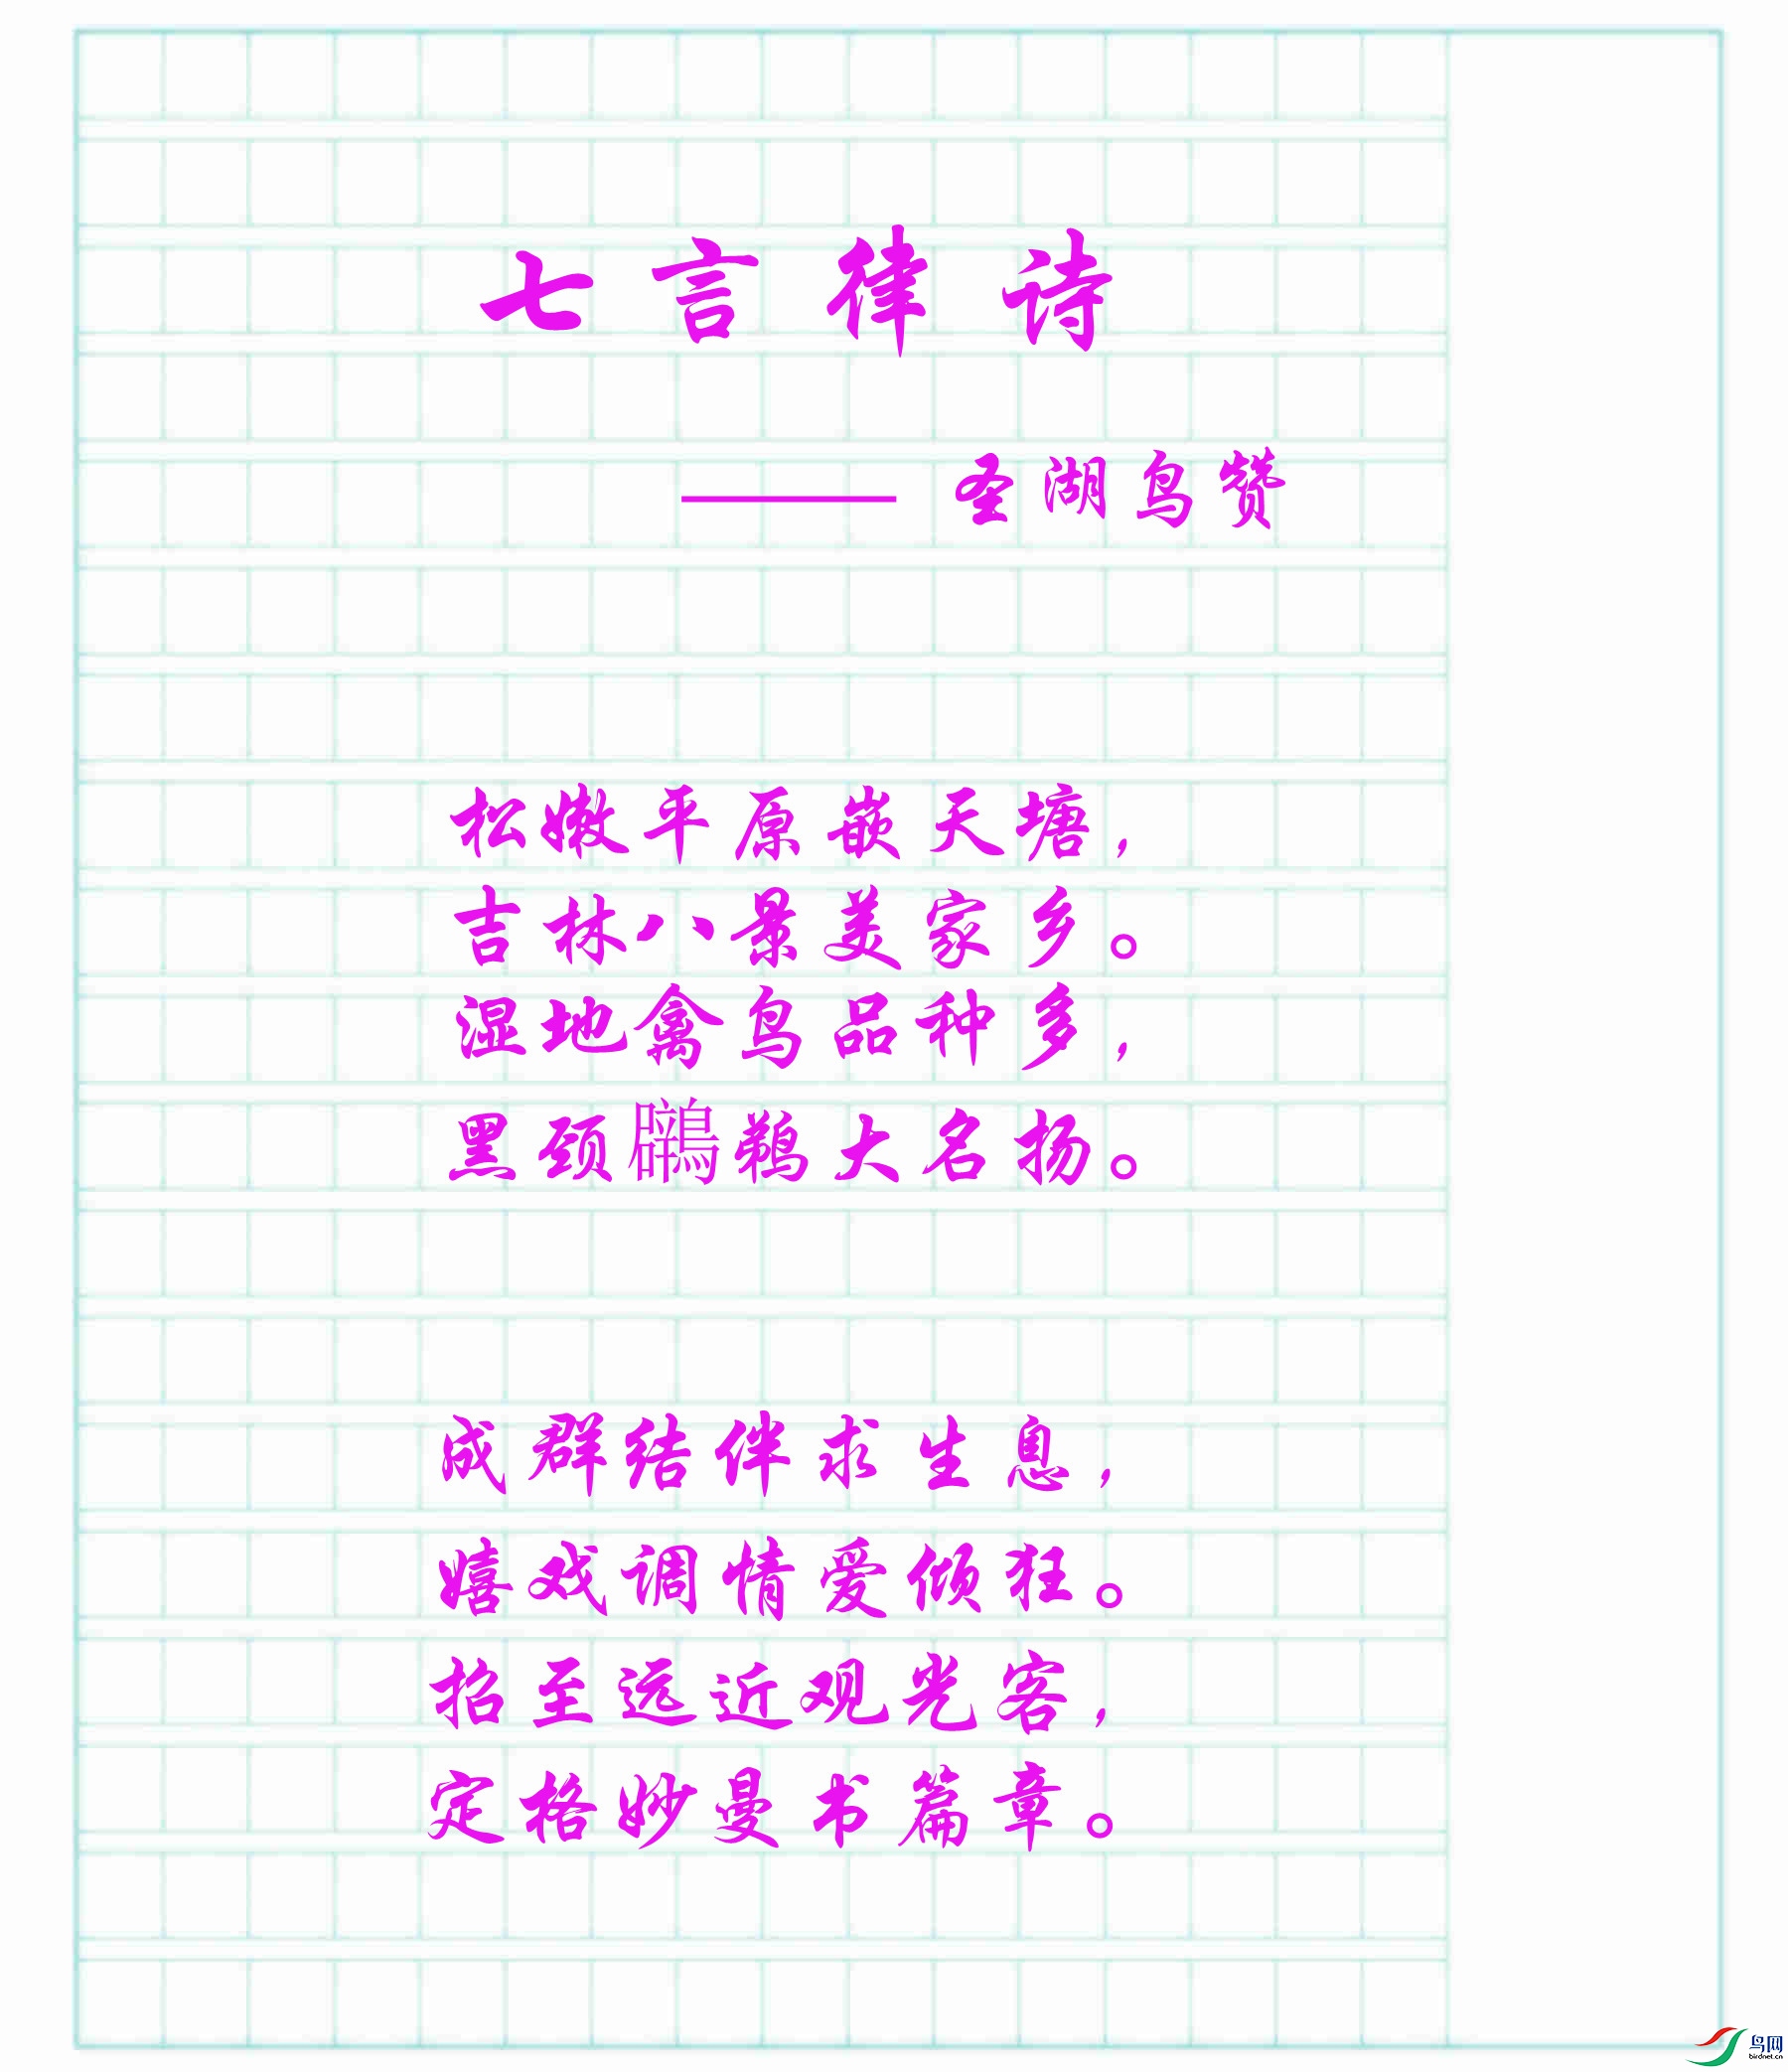 七言律诗
—— 圣湖鸟赞
松嫩平原嵌天塘，
吉林八景美家乡。
湿地禽鸟品种多，
黑颈鸊鹈大名扬。
成群结伴求生息，
嬉戏调情爱倾狂。
招至远近观光客，
定格妙曼书篇章。
鸟网
birdnet.cn